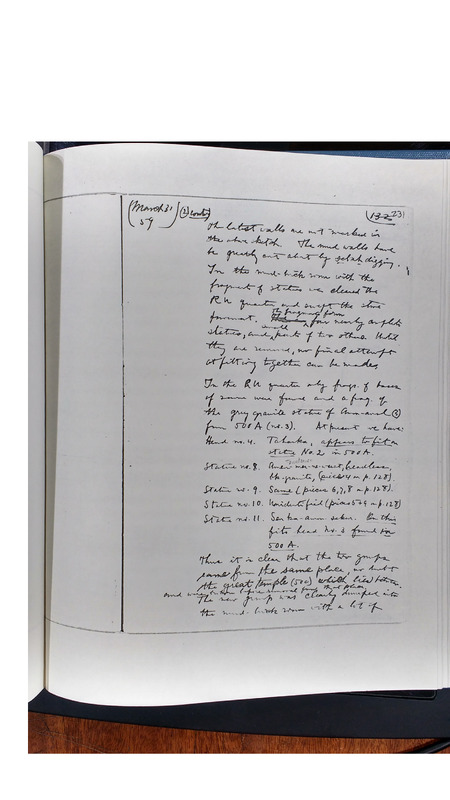 (March 31 59) (2) contd. (132 231
The latest walls are not marked in
the above sketch. The mud walls have
be greatly cut about by sebakh digging.
In the mud-brick room with the
fragments of statues we cleared the
R.U. quarter and swept the stone
pavement. The fragments form
small four nearly complete
statues, and parts of two others. Until
they are removed, no final attempt
at fitting together can be made.
In the R.U. quarter only frags. of bases
of same were found and a frag. of
the grey granite statue of Anmarel (2)
from 500 A (no. 3). At present we have:
Head no. 4. Taharka, appears to fit on
statue No. 2 in 500 A.
Statue no. 8. headless,
blk. granite, (pieces 4 on p. 128).
Statue no. 9. Same (pieces 6, 7, 8 on p. 128).
Statue no. 10. Unidentified (pieces 5 & 9 on p. 128)
Statue no. 11. Senka-amon-seken. On this
fits head no. 3 found in
500 A.
Thus it is clear that the two groups
came from the same place, no doubt
the great temple (500) which lies
and were broken before removal from that place
The new group was clearly dumped into
the mud-brick room with a lot of